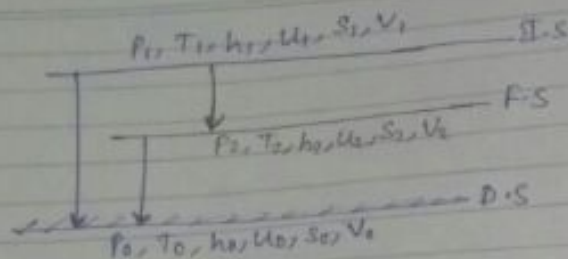 P₁, T₁, h₁, u₁, S₁, V₁ I.S
F.S
P₂, T₂, h₂, u₂, S₂, V₂
D.S
P₀, T₀, h₀, u₀, S₀, V₀